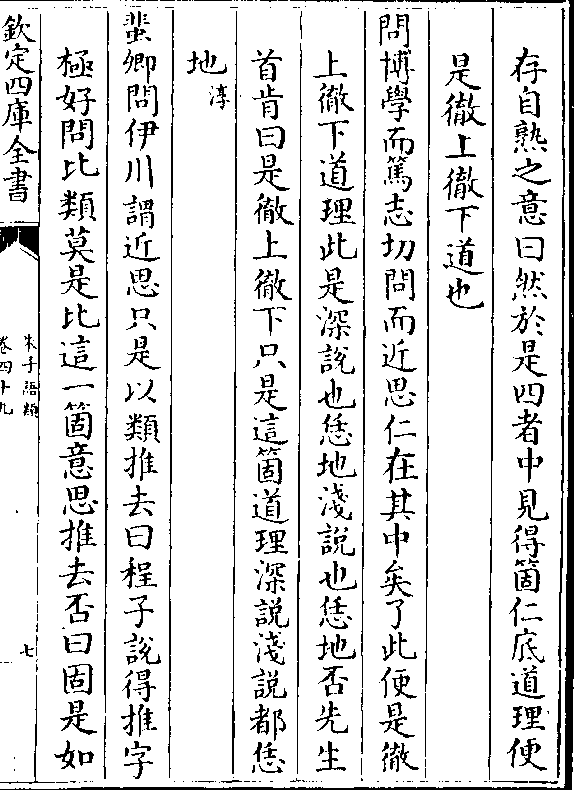 存自熟之意曰然於是四者中見得箇仁底道理便
是徹上徹下道也
問博學而篤志切問而近思仁在其中矣了此便是徹
上徹下道理此是深說也恁地淺說也恁地否先生
首肯曰是徹上徹下只是這箇道理深說淺說都恁
地淳
蜚卿問伊川謂近思只是以類推去曰程子說得推字
極好問比類莫是比這一箇意思推去否曰固是如
欽定四庫全書
朱子語類
卷四十九
七